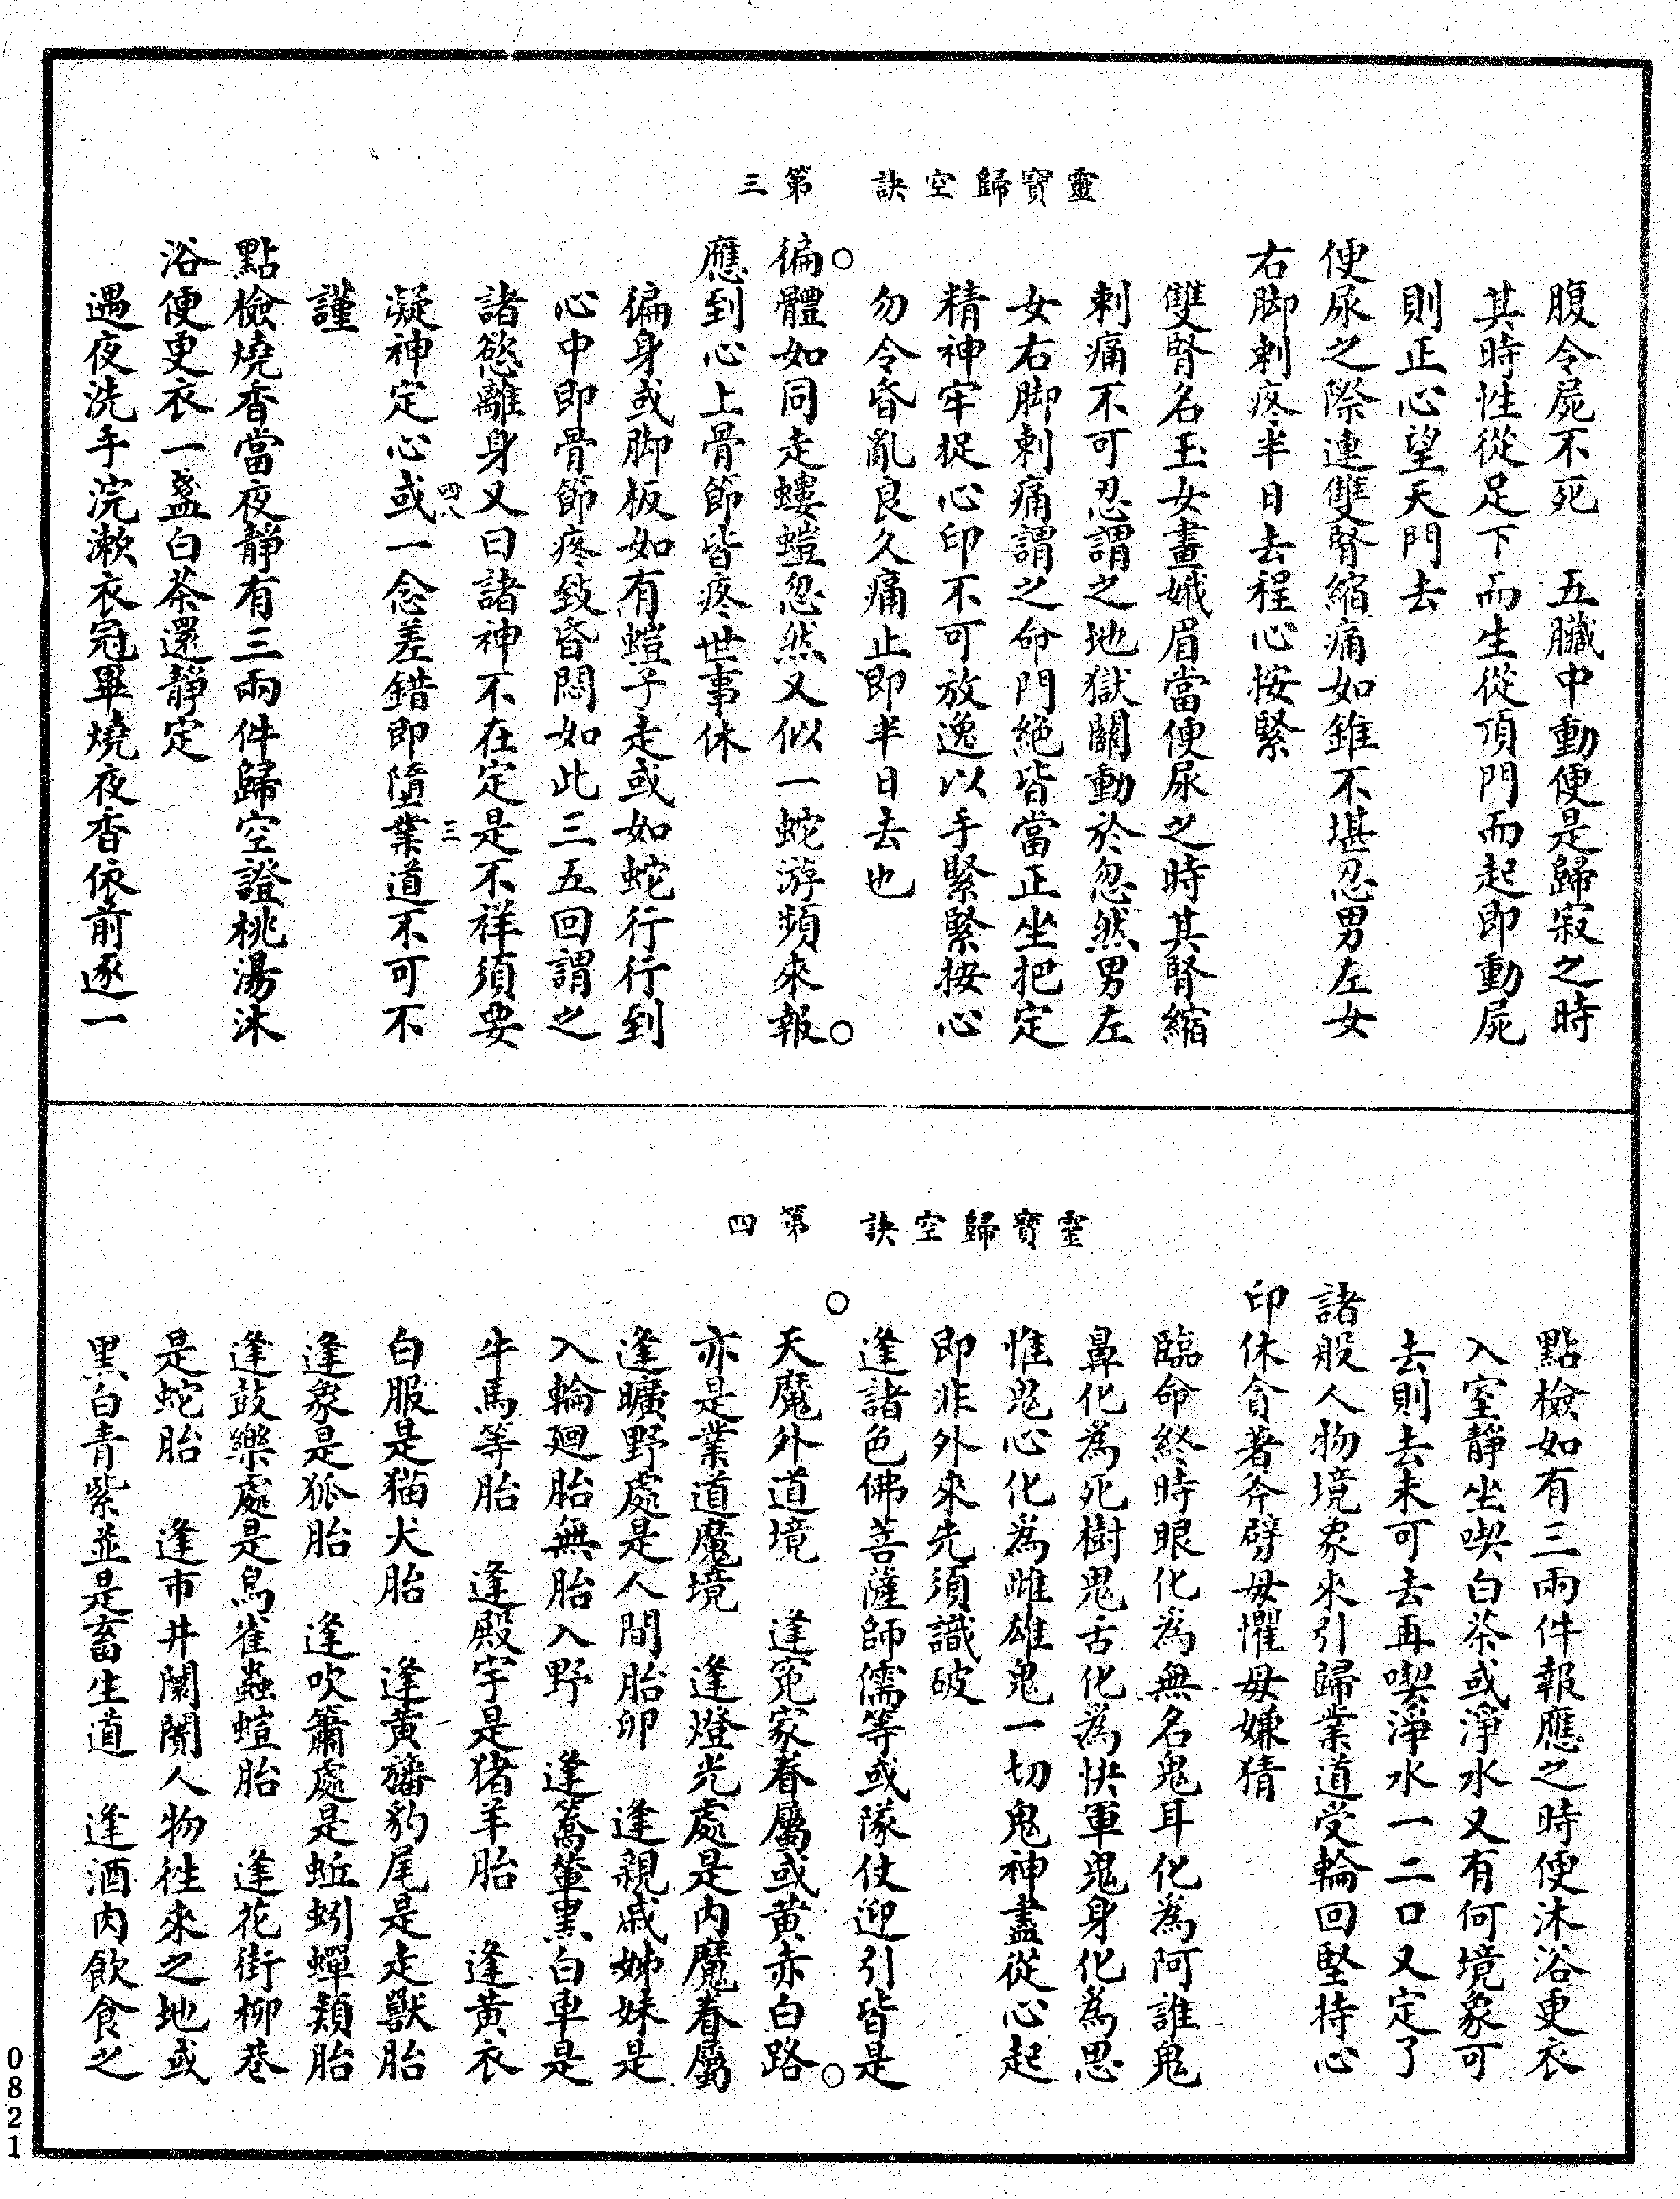 靈寶歸空訣　第三
腹令屍不死　五臟中動便是歸寂之時
其時性從足下而生從頂門而起即動屍
則正心望天門去
便尿之際連雙腎縮痛如錐不堪忍男左女
右脚刺疼半日去程心按緊
雙腎名玉女畫娥眉當便尿之時其腎縮
刺痛不可忍謂之地獄關動於忽然男左
女右脚刺痛謂之命門絕皆當正坐把定
精神牢捉心印不可放逸以手緊緊按心
勿令昏亂良久痛止即半日去也
徧體如同走螻螘忽然又似一蛇游頻來報
應到心上骨節皆疼世事休
徧身或脚板如有螘子走或如蛇行行到
心中即骨節疼致昏悶如此三五回謂之
諸慾離身又曰諸神不在定是不祥須要
四八　三
凝神定心或一念差錯即墮業道不可不
謹
點檢燒香當夜靜有三兩件歸空證桃湯沐
浴便更衣一盞白茶還靜定
遇夜洗手浣漱衣冠畢燒夜香依前逐一
靈寶歸空訣　第四
點檢如有三兩件報應之時便沐浴更衣
入室靜坐喫白茶或淨水又有何境象可
去則去未可去再喫淨水一二口又定了
諸般人物境象來引歸業道受輪回堅持心
印休貪著斧劈毋懼毋嫌猜
臨命終時眼化為無名鬼耳化為阿誰鬼
鼻化為死樹鬼舌化為快軍鬼身化為思
惟鬼心化為雌雄鬼一切鬼神盡從心起
即非外來先須識破
逢諸色佛菩薩師儒等或隊仗迎引皆是
天魔外道境　逢寃家眷屬或黃赤白路
亦是業道魔境　逢燈光處是內魔眷屬
逢曠野處是人間胎卵　逢親戚姊妹是
入輪廻胎無胎入野　逢篙輦黑白車是
牛馬等胎　逢殿宇是猪羊胎　逢黃衣
白服是猫犬胎　逢黃旛豹尾是走獸胎
逢象是狐胎　逢吹簫處是蚯蚓蟬類胎
逢鼓樂處是鳥雀蟲螘胎　逢花街柳巷
是蛇胎　逢市井闤闠人物徃來之地或
黑白青紫並是畜生道　逢酒肉飲食之
0821